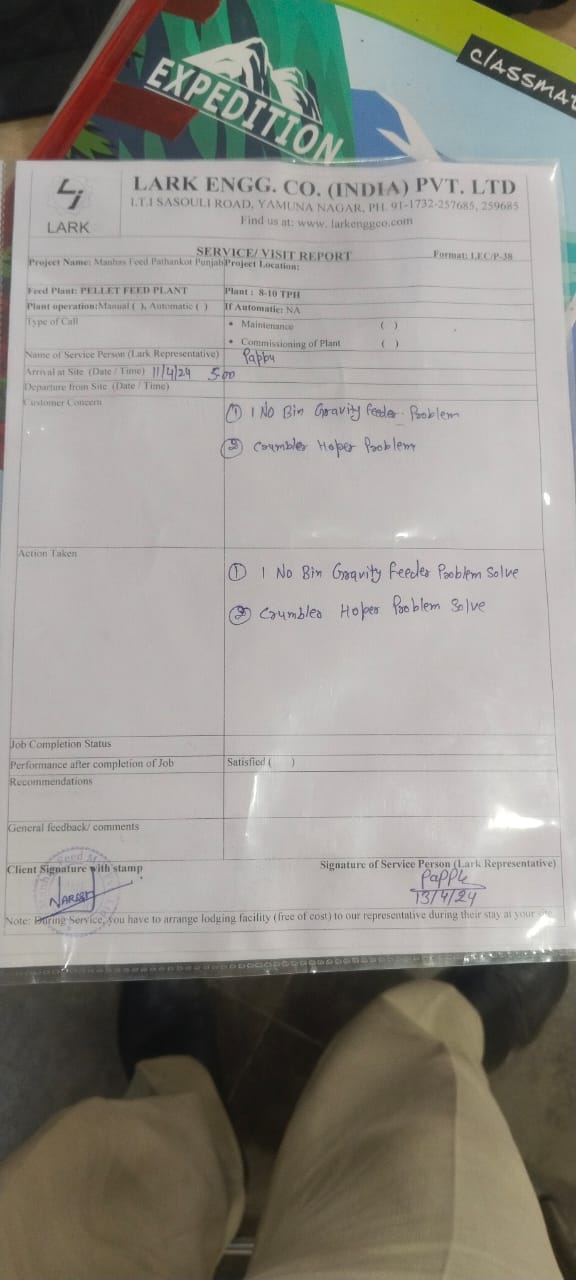 EXPEDITION
classmat
Li
LARK
LARK ENGG. CO. (INDIA) PVT. LTD
I.T.I SASOULI ROAD, YAMUNA NAGAR, PH. 91-1732-257685, 259685
Find us at: www. larkenggco.com
SERVICE/ VISIT REPORT Format: LEC/P-38
Project Name: Manhas Feed Pathankot Punjab Project Location:
Feed Plant: PELLET FEED PLANT Plant : 8-10 TPH
Plant operation:Manual ( ), Automatic ( ) If Automatic: NA
Type of Call • Maintenance ( )
• Commissioning of Plant ( )
Name of Service Person (Lark Representative) Pappu
Arrival at Site (Date / Time) 11/4/24 5:00
Departure from Site (Date / Time)
Customer Concern ① 1 No Bin Gravity Feeder Problem
② Crumbler Hoper Problem
Action Taken ① 1 No Bin Gravity Feeder Problem Solve
② Crumbler Hoper Problem Solve
Job Completion Status
Performance after completion of Job Satisfied ( )
Recommendations
General feedback/ comments
Client Signature with stamp Signature of Service Person (Lark Representative)
NARESH Pappu
13/4/24
Note: During Service, you have to arrange lodging facility (free of cost) to our representative during their stay at your site